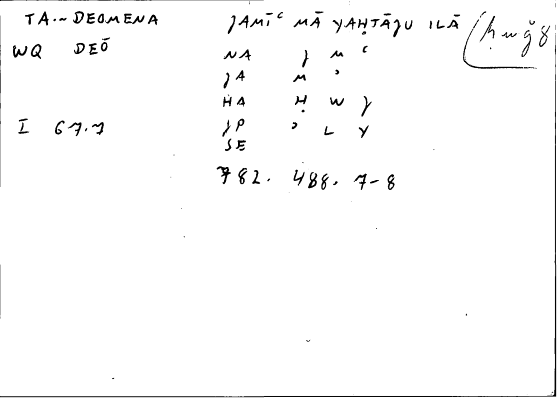 TA~DEOMENA JAMĪʿ MĀ YAḤTĀJU ILĀ ḥwǧ8
WQ DEŌ NA J M ʿ
JA M ʾ
HA Ḥ W J
I 67.7 JP ʾ L Y
SE
782. 488. 7-8